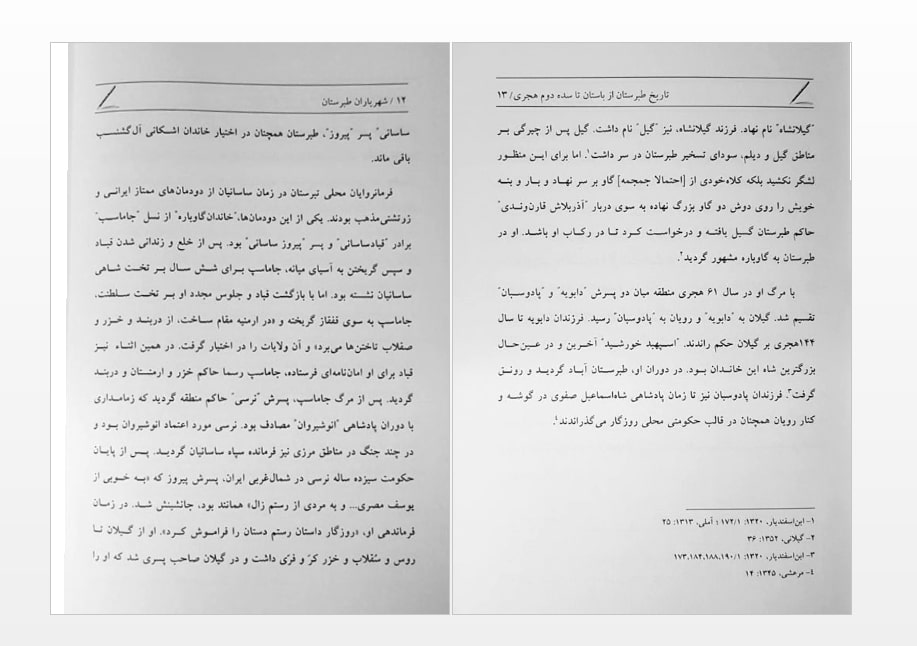 ۱۲ / شهریاران طبرستان
ساسانی" پسر "پیروز"، طبرستان همچنان در اختیار خاندان اشکانی آل‌گشنسب
باقی ماند.
فرمانروایان محلی تبرستان در زمان ساسانیان از دودمان‌های ممتاز ایرانی و
زرتشتی‌مذهب بودند. یکی از این دودمان‌ها،"خاندان‌گاوباره" از نسل "جاماسب"
برادر "قبادساسانی" و پسر "پیروز ساسانی" بود. پس از خلع و زندانی شدن قباد
و سپس گریختن به آسیای میانه، جاماسپ برای شش سال بر تخت شاهی
ساسانیان نشسته بود. اما با بازگشت قباد و جلوس مجدد او بر تخت سلطنت،
جاماسپ به سوی قفقاز گریخته و «در ارمنیه مقام ساخت، از دربند و خزر و
صقلاب تاختن‌ها می‌برد» و آن ولایات را در اختیار گرفت. در همین اثناء نیز
قباد برای او امان‌نامه‌ای فرستاده، جاماسپ رسما حاکم خزر و ارمنستان و دربند
گردید. پس از مرگ جاماسپ، پسرش "نرسی" حاکم منطقه گردید که زمامداری
با دوران پادشاهی "انوشیروان" مصادف بود. نرسی مورد اعتماد انوشیروان بود و
در چند جنگ در مناطق مرزی نیز فرمانده سپاه ساسانیان گردید. پس از پایان
حکومت سیزده ساله نرسی در شمال‌غربی ایران، پسرش پیروز که «به خوبی از
یوسف مصری... و به مردی از رستم زال» همانند بود، جانشینش شد. در زمان
فرماندهی او، «روزگار داستان رستم دستان را فراموش کرد». او از گیلان تا
روس و سقلاب و خزر کرّ و فرّی داشت و در گیلان صاحب پسری شد که او را
تاریخ طبرستان از باستان تا سده دوم هجری/ ۱۳
"گیلانشاه" نام نهاد. فرزند گیلانشاه، نیز "گیل" نام داشت. گیل پس از چیرگی بر
مناطق گیل و دیلم، سودای تسخیر طبرستان در سر داشت¹. اما برای این منظور
لشگر نکشید بلکه کلاه‌خودی از [احتمالا جمجمه] گاو بر سر نهاد و بار و بنه
خویش را روی دوش دو گاو بزرگ نهاده به سوی دربار "آذربلاش قارن‌وندی"
حاکم طبرستان گسیل یافته و درخواست کرد تا در رکاب او باشد. او در
طبرستان به گاوباره مشهور گردید².
با مرگ او در سال ۶۱ هجری منطقه میان دو پسرش "دابویه" و "پادوسبان"
تقسیم شد. گیلان به "دابویه" و رویان به "پادوسبان" رسید. فرزندان دابویه تا سال
۱۴۴هجری بر گیلان حکم راندند. "اسپهبد خورشید" آخرین و در عین‌حال
بزرگترین شاه این خاندان بود. در دوران او، طبرستان آباد گردید و رونق
گرفت³. فرزندان پادوسبان نیز تا زمان پادشاهی شاه‌اسماعیل صفوی در گوشه و
کنار رویان همچنان در قالب حکومتی محلی روزگار می‌گذراندند⁴.
۱- ابن‌اسفندیار، ۱۳۲۰: ۱۷۲/۱ ؛ آملی، ۱۳۱۳: ۲۵
۲- گیلانی، ۱۳۵۲: ۳۶
۳- ابن‌اسفندیار، ۱۳۲۰: ۱۷۳،۱۸۴،۱۸۸،۱۹۰/۱
٤- مرعشی، ۱۳۴۵: ۱۴